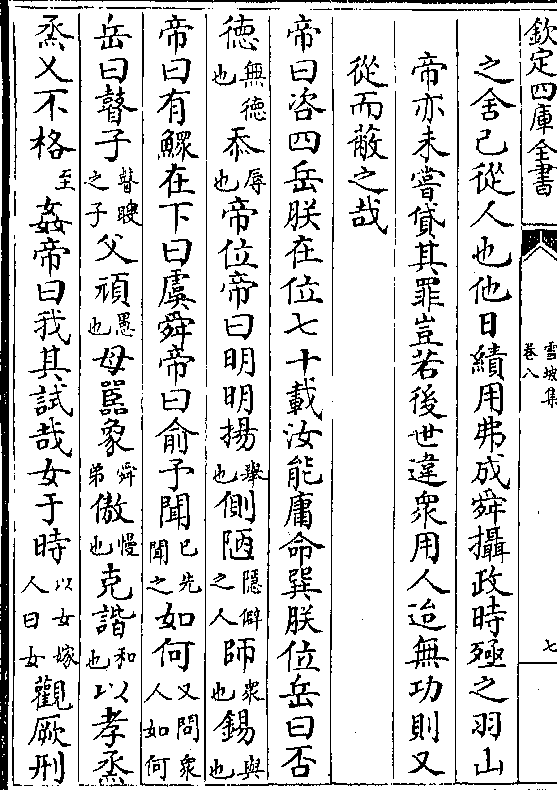 欽定四庫全書
雪坡集
卷八
七
之舍己從人也他日績用弗成舜攝政時殛之羽山
帝亦未嘗貸其罪豈若後世違衆用人迨無功則又
從而蔽之哉
帝曰咨四岳朕在位七十載汝能庸命巽朕位岳曰否
德無德也忝辱也帝位帝曰明明揚舉也側陋隱僻之人師衆也錫與也
帝曰有鰥在下曰虞舜帝曰俞予聞已先聞之如何又問衆人如何
岳曰瞽子瞽瞍之子父頑愚也母嚚象舜弟傲慢也克諧和也以孝烝
烝乂不格至姦帝曰我其試哉女于時以女嫁人曰女觀厥刑